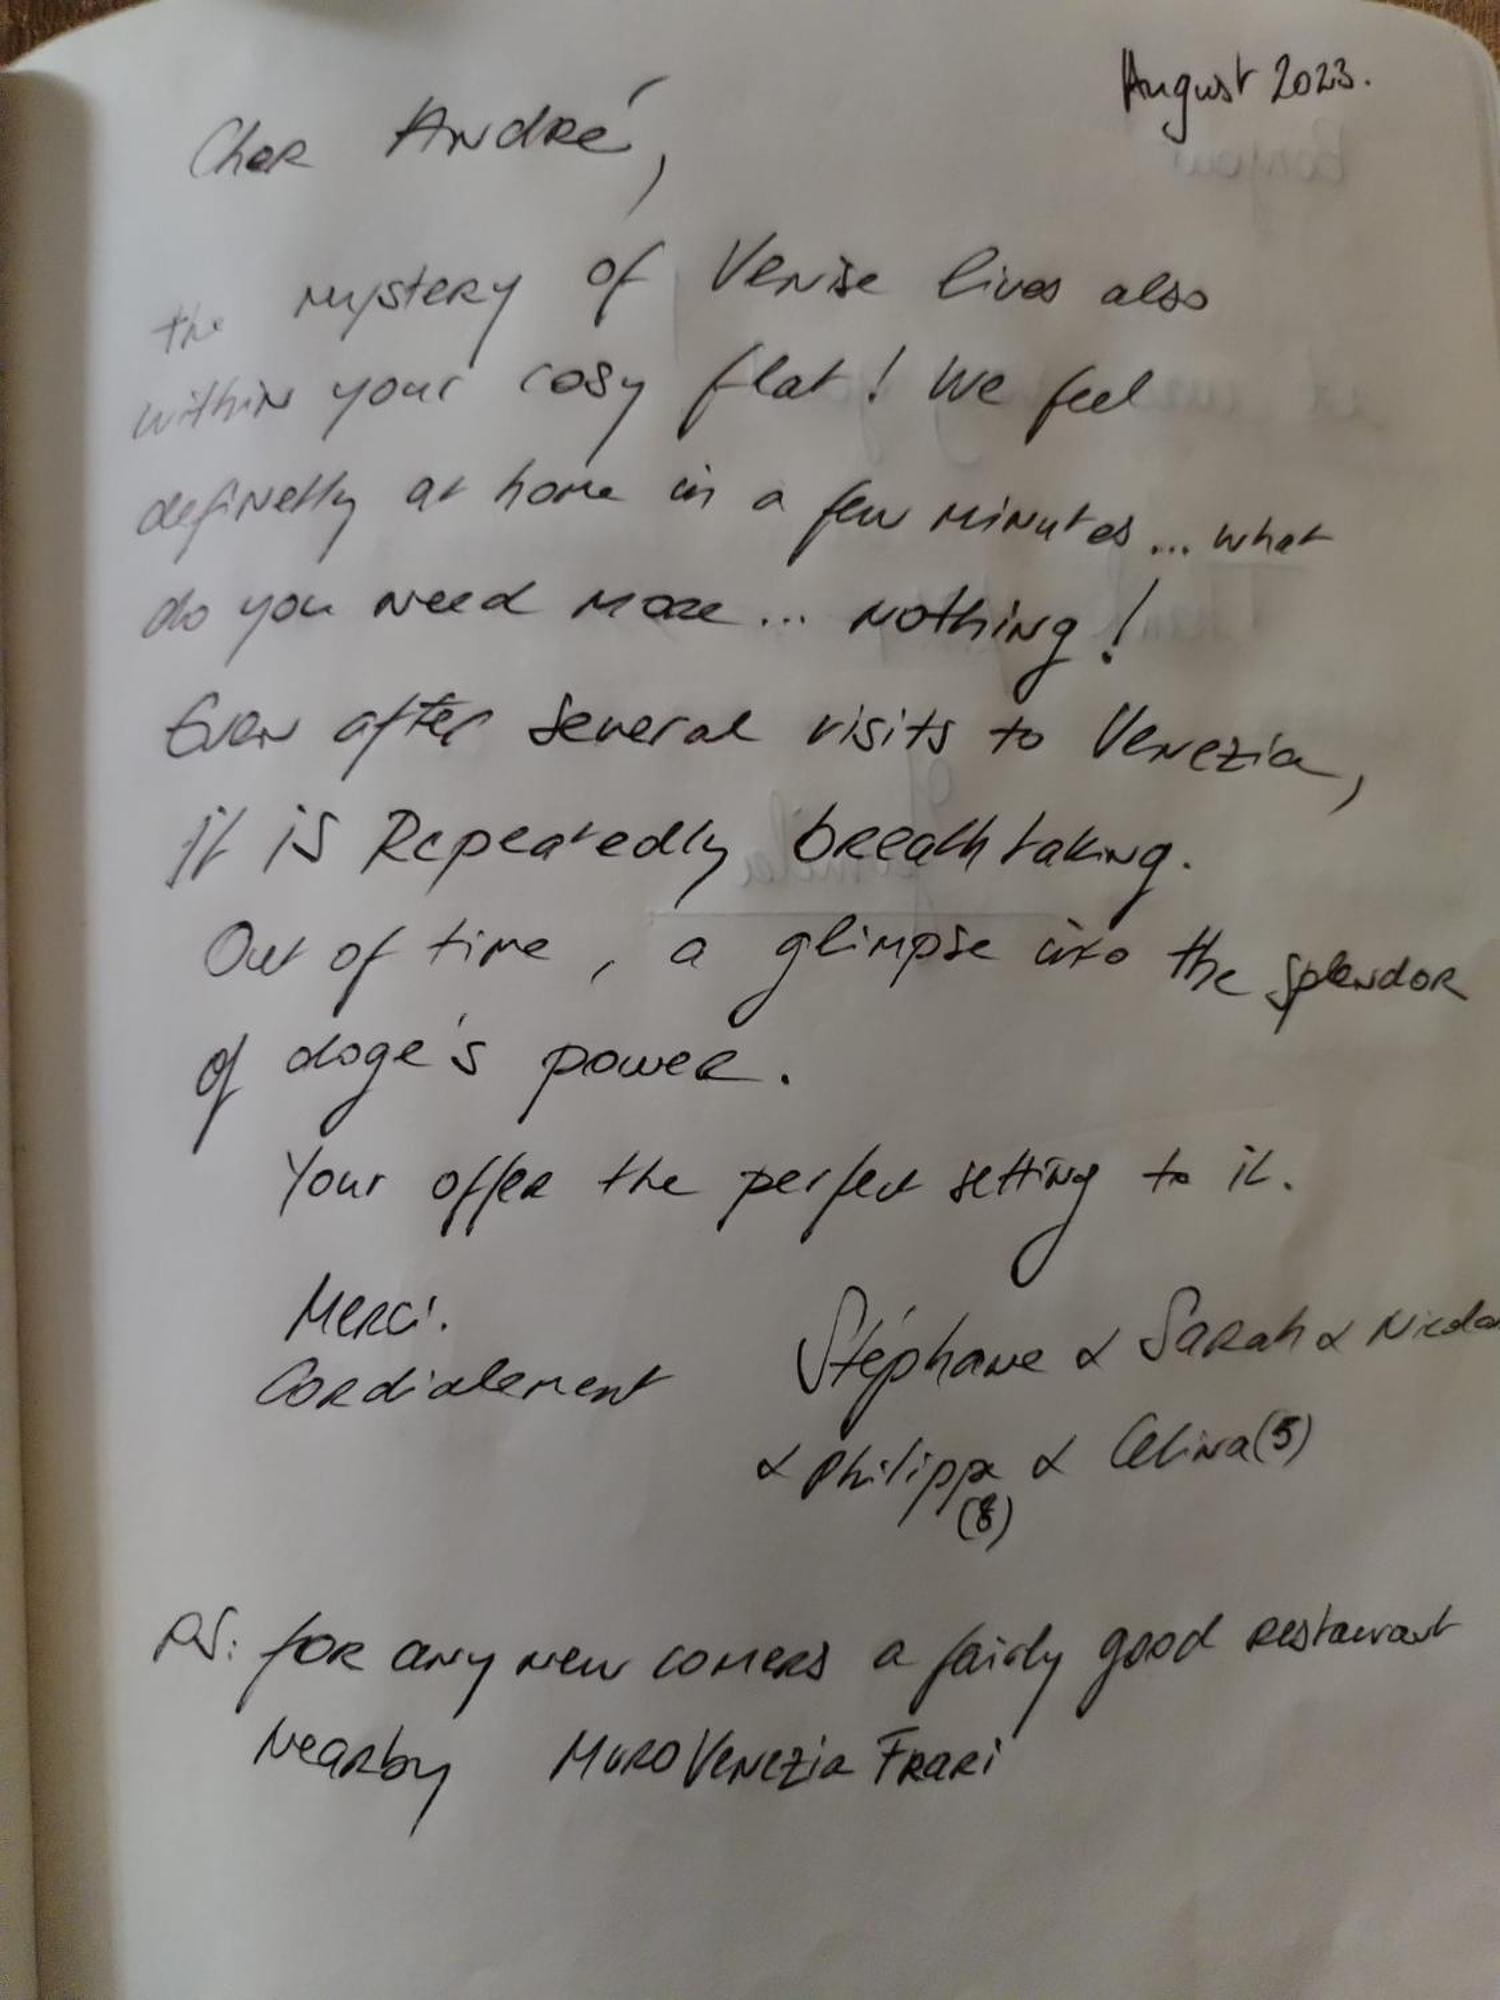 August 2023.
Cher André,
the mystery of Venise lives also
within your cosy flat! We feel
definetly at home in a few minutes... what
do you need more... nothing!
Even after several visits to Venezia,
it is Repeatedly breathtaking.
Out of time, a glimpse into the splendor
of doge's power.
Your offer the perfect setting to it.
Merci.
Cordialement
Stéphane & Sarah &
& Philippa & Celina (5)
(8)
PS: for any new comers a fairly good restaurant
nearby Muro Venezia Frari